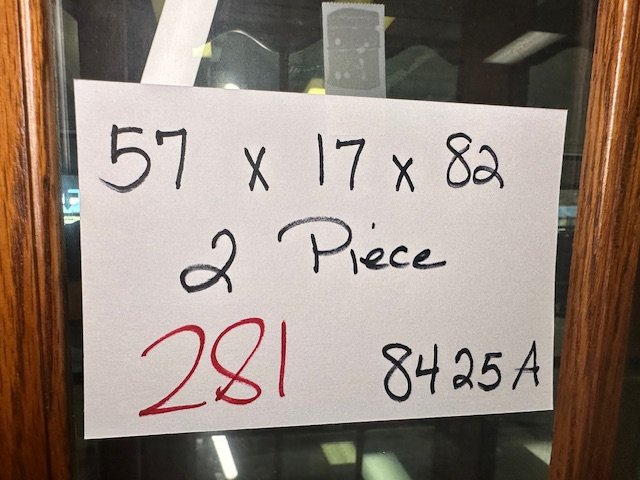 57 x 17 x 82
2 Piece
281 8425A